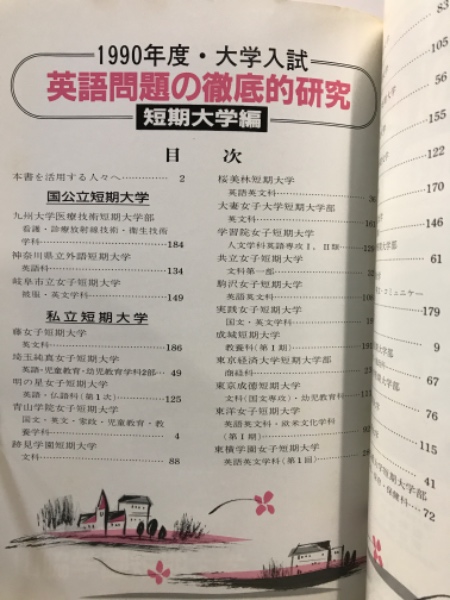 1990年度・大学入試
英語問題の徹底的研究
短期大学編
目 次
本書を活用する人々へ 2
国公立短期大学
九州大学医療技術短期大学部
看護・診療放射線技術・衛生技術
学科 184
神奈川県立外語短期大学
英語科 134
岐阜市立女子短期大学
被服・英文学科 149
私立短期大学
藤女子短期大学
英文科 186
埼玉純真女子短期大学
英語・児童教育・幼児教育学科2部 49
明の星女子短期大学
英語・仏語科(第1次) 125
青山学院女子短期大学
国文・英文・家政・児童教育・教
養学科 4
跡見学園短期大学
文科 88
桜美林短期大学
英語英文科
大妻女子大学短期大学部
英文科 161
学習院女子短期大学
人文学科英語専攻Ⅰ,Ⅱ類
共立女子短期大学
文科第一部
駒沢女子短期大学
英語英文科 106
実践女子短期大学
国文・英文学科
成城短期大学
教養科(第1期) 195
東京経済大学短期大学部
商経科
東京成徳短期大学
文科(国文専攻)・幼児教育科
東洋女子短期大学
英語英文科・欧米文化学科
(第1期)
東横学園女子短期大学
英語英文学科(第1回)
83
105
56
155
122
170
146
61
・コミュニケー
179
9
67
76
115
41
大学短期大学部
・保健科 72